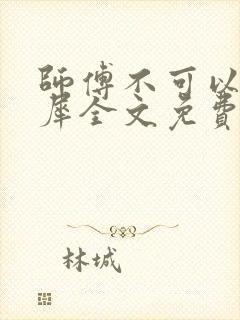 師傅不可以
犀全文免費
林城